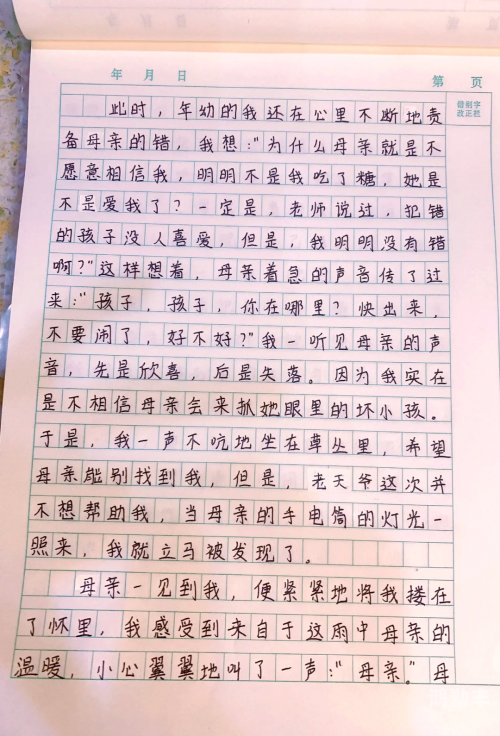 年 月 日 第 页
错别字
改正栏
此时，年幼的我还在公里不断地责
备母亲的错，我想："为什么母亲就是不
愿意相信我，明明不是我吃了糖，她是
不是爱我了？一定是，老师说过，犯错
的孩子没人喜爱，但是，我明明没有错
啊？"这样想着，母亲着急的声音传了过
来："孩子，孩子，你在哪里？快出来，
不要闹了，好不好？"我一听见母亲的声
音，先是欣喜，后是失落。因为我实在
是不相信母亲会来抓她眼里的坏小孩。
于是，我一声不吭地坐在草丛里，希望
母亲能别找到我，但是，老天爷这次并
不想帮助我，当母亲的手电筒的灯光一
照来，我就立马被发现了。
母亲一见到我，便紧紧地将我搂在
了怀里，我感受到来自于这雨中母亲的
温暖，小心翼翼地叫了一声："母亲。"母